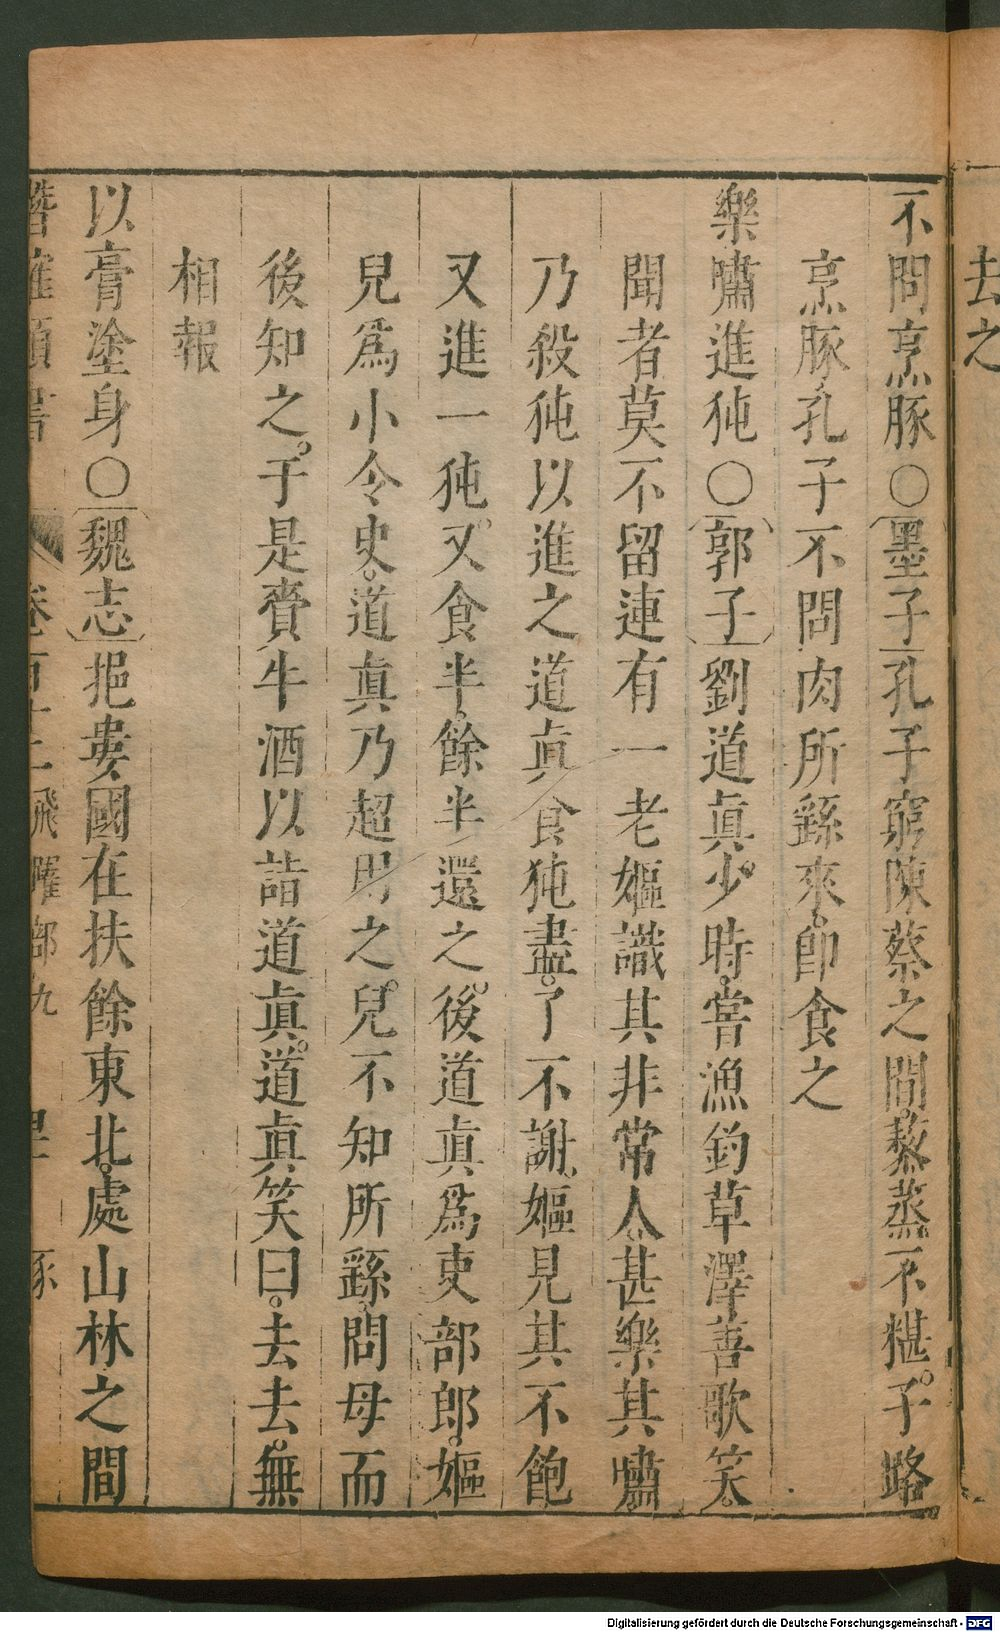 去之
不問烹豚○墨子孔子窮陳蔡之間。藜蒸不糂。子路
烹豚、孔子不問肉所繇來。卽食之
樂嘯進㹠○郭子劉道眞少時。嘗漁釣草澤善歌笑。
聞者莫不留連有一老嫗識其非常人。甚樂其嘯
乃殺㹠以進之道眞食㹠盡。了不謝、嫗見其不飽
又進一㹠。又食半。餘半還之。後道眞爲吏部郎。嫗
兒爲小令史。道眞乃超用之。兒不知所繇、問母而
後知之。于是賫牛酒以詣道眞。道眞笑曰。去去。無
相報
以膏塗身○魏志挹婁國在扶餘東北。處山林之間
飛躍部九 豕
Digitalisierung gefördert durch die Deutsche Forschungsgemeinschaft - DFG